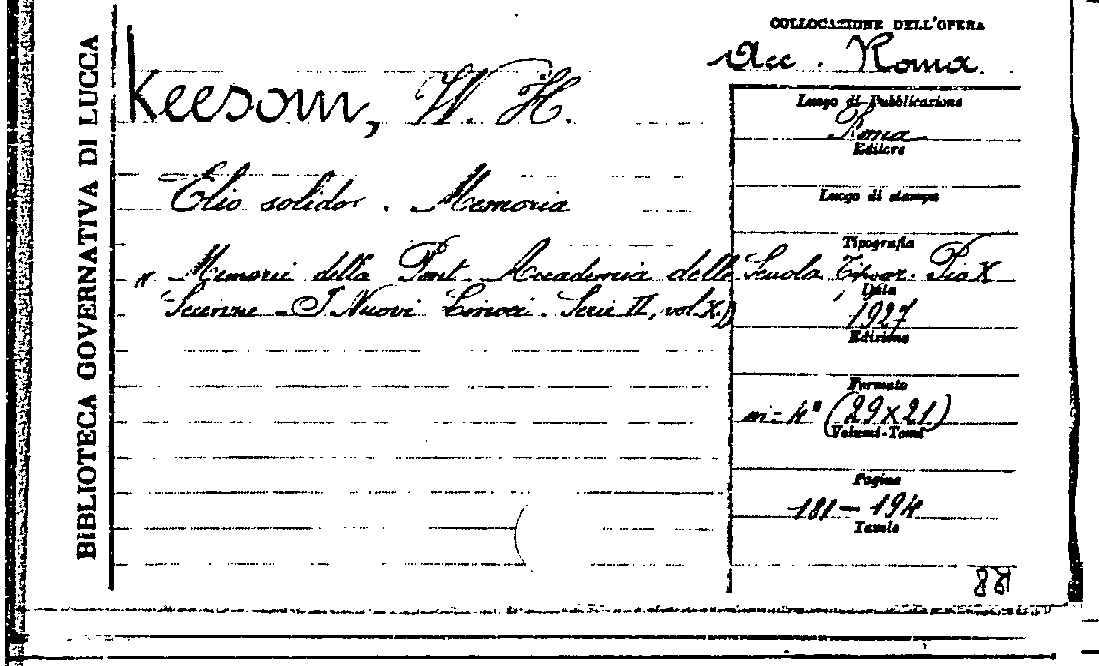 BIBLIOTECA GOVERNATIVA DI LUCCA
Keesom, W. H.
Elio solido. Memoria
" Memorie della Pont. Accademia delle
Scienze - I Nuovi Lincei. Serie II, vol. X.)
COLLOCAZIONE DELL'OPERA
Acc. Roma.
Luogo di Pubblicazione
Roma
Editore
Luogo di stampa
Tipografia
Scuola Tipogr. Pio X
Data
1927
Edizione
Formato
in-4° (29x21)
Volumi-Tomi
Pagine
181-194
Tavole